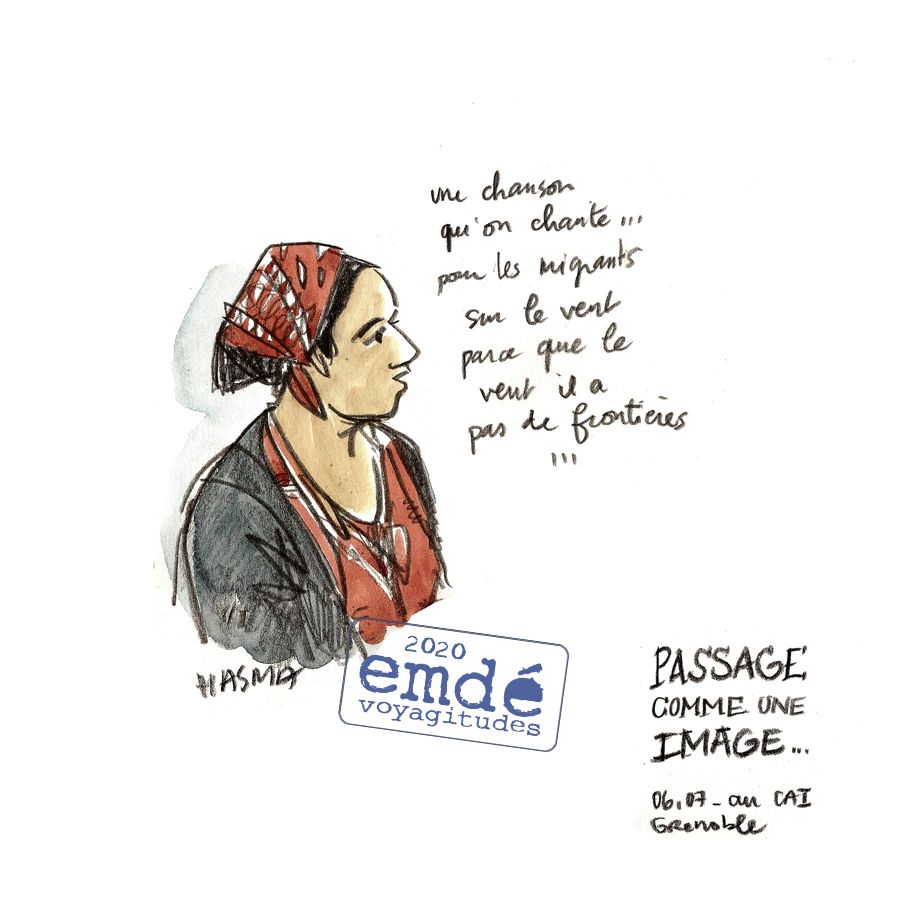 une chanson
qu'on chante...
pour les migrants
sur le vent
parce que le
vent il a
pas de frontières
...
HASMA
2020
emdé
voyagitudes
PASSAGE
COMME UNE
IMAGE...
06.07_au CAI
Grenoble